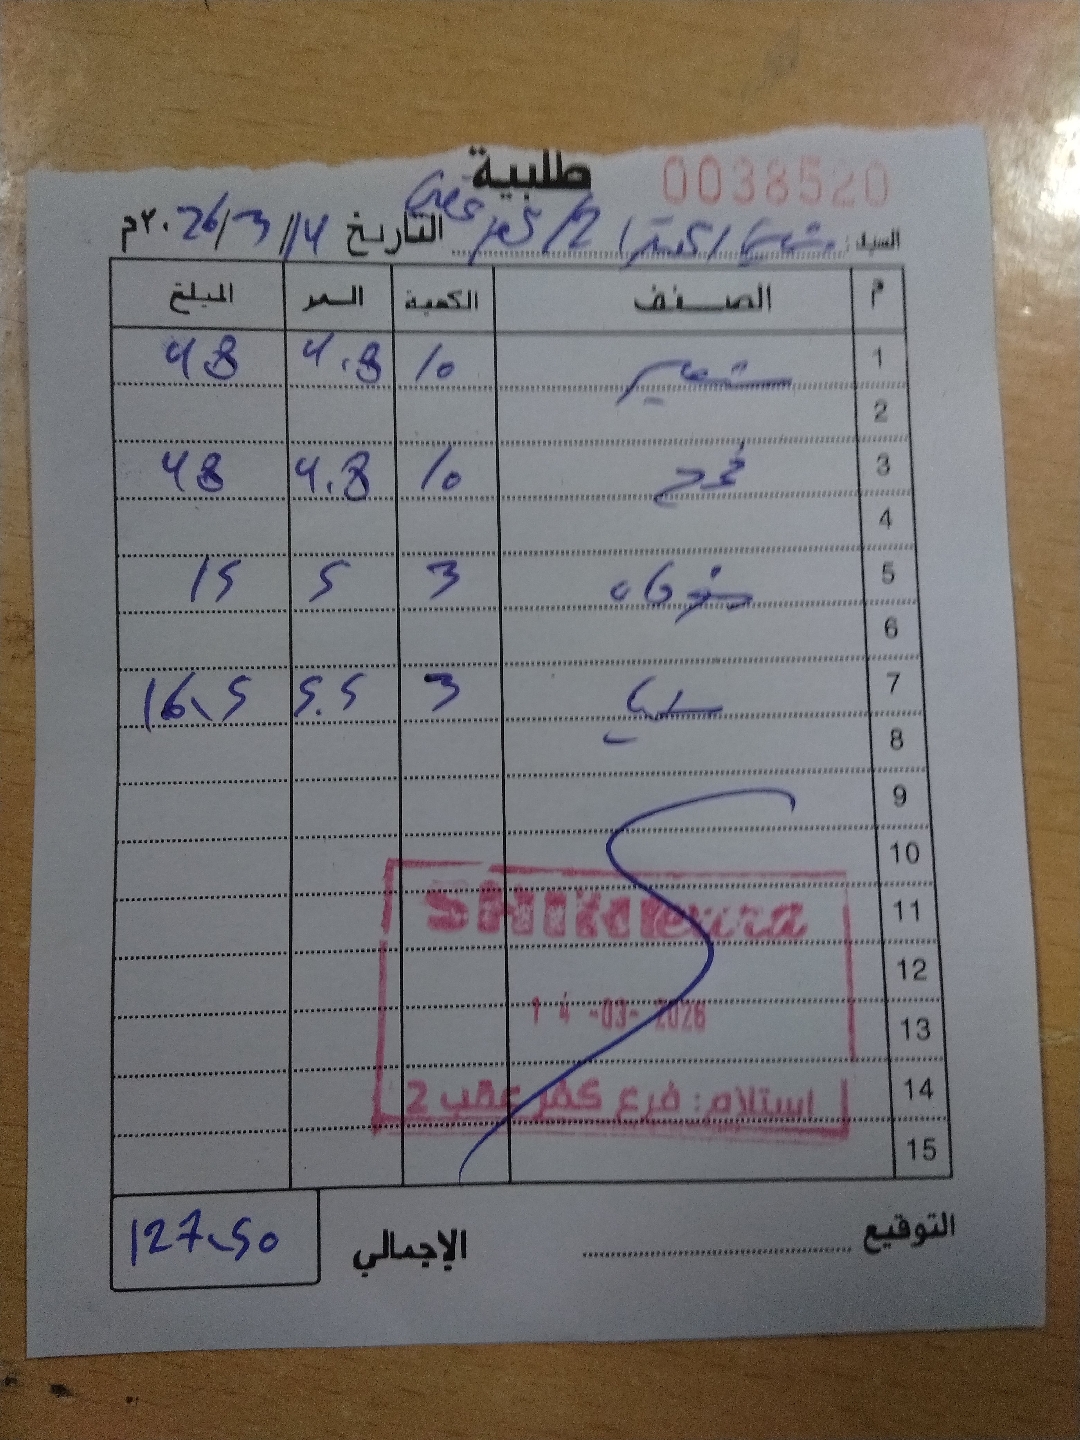 طلبية
0038520
السيد: شيني اكسترا 2/ كفر عقب التاريخ 14/3/2026م
م الصنف الكمية السعر المبلغ
1 شعير 10 4.8 48
2
3 قمح 10 4.8 48
4
5 3 5 15
6
7 3 5.5 16.5
8
9
10
11
12
13
14
15
14-03-2026
استلام: فرع كفر عقب 2
التوقيع
الإجمالي 127.50